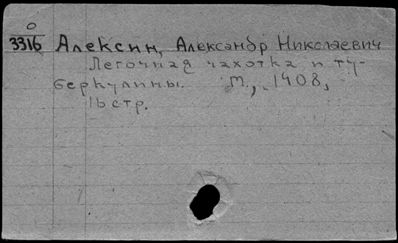 0
3316 Алексин, Александр Николаевич
Легочная чахотка и ту-
беркулины. М., 1908,
16 стр.